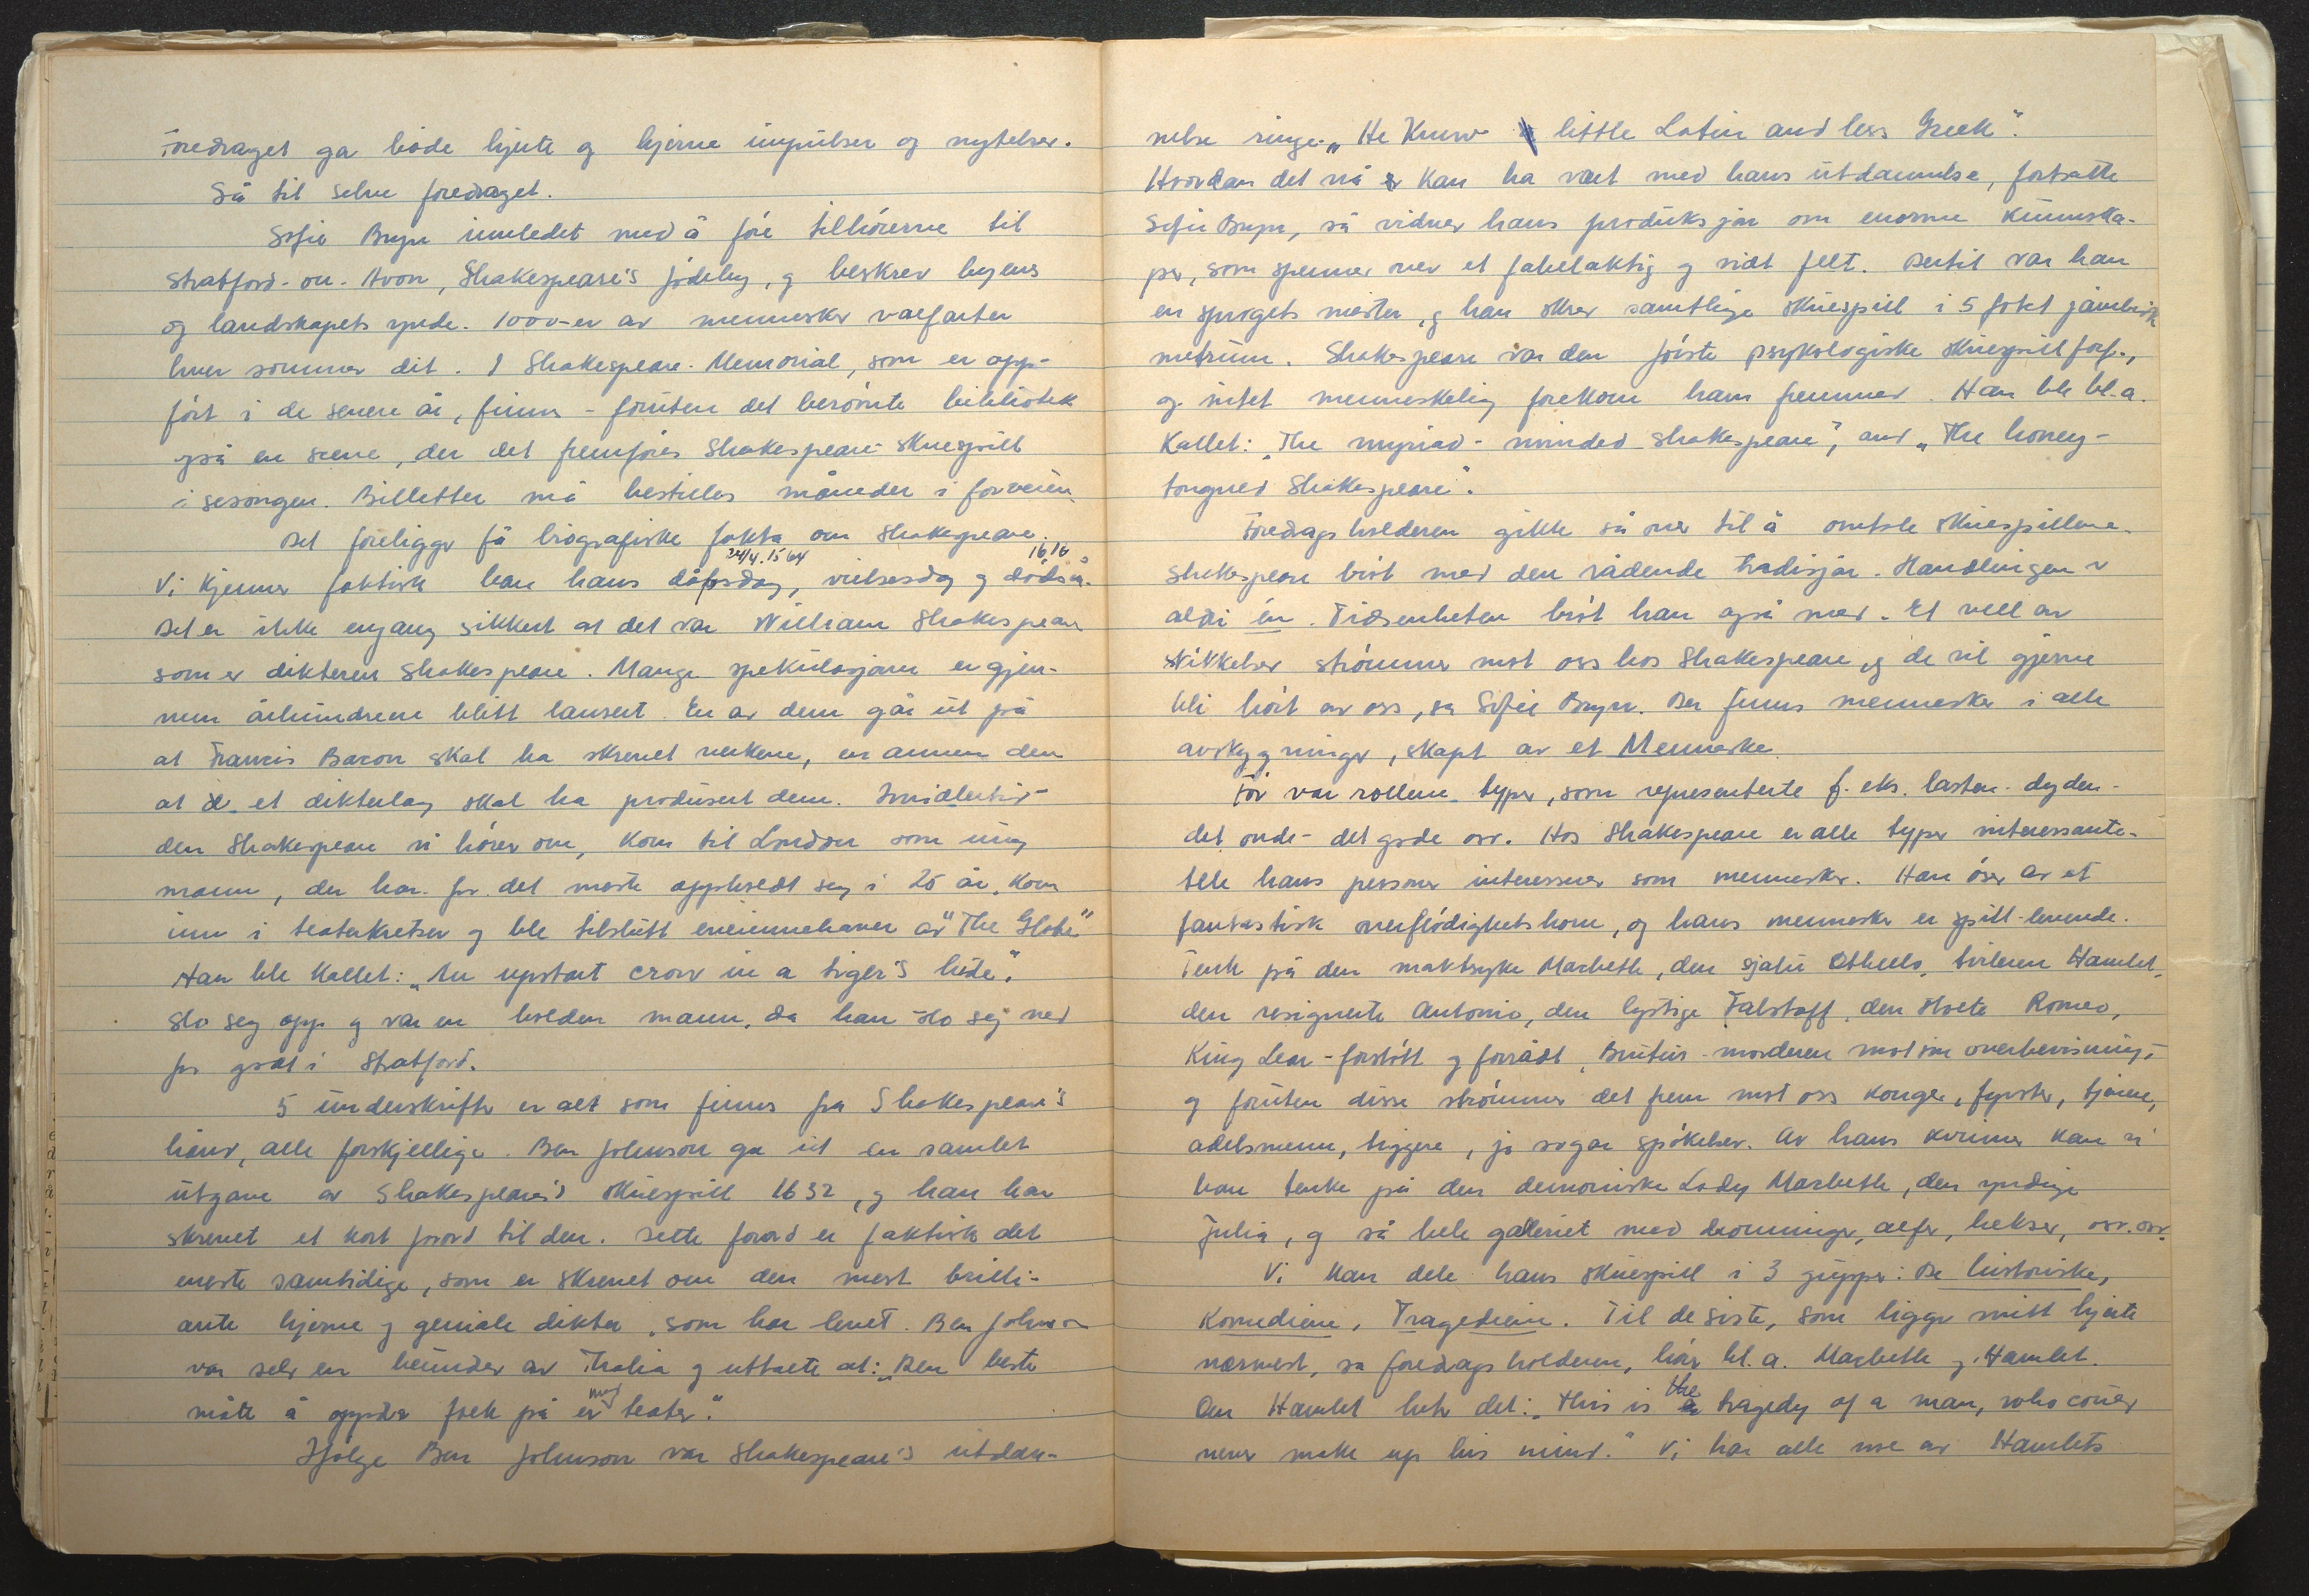 Foredraget ga både hjerte og hjerne impulser og nytelser.
Så til selve foredraget.
Sofie Bryn innledet med å føre tilhørerne til
Stratford-on-Avon, Shakespeare's fødeby, og beskrev byens
og landskapets ynde. 1000-er av mennesker valfarter
hver sommer dit. I Shakespeare-Memorial, som er opp-
ført i de senere år, finns - foruten det berømte bibliotek
også en scene, der det fremføres Shakespeare-skuespill
i sesongen. Billetter må bestilles måneder i forveien.
Det foreligger få biografiske fakta om Shakespeare.
24/4.1564 1616
Vi kjenner faktisk bare hans dåpsdag, vielsesdag og dødsår.
Det er ikke engang sikkert at det var William Shakespeare
som er dikteren Shakespeare. Mange spekulasjoner er gjen-
nem århundrene blitt lansert. En av dem går ut på
at Francis Bacon skal ha skrevet verkene, en annen den
at et dikterlag skal ha produsert dem. Imidlertid -
den Shakespeare vi hører om, kom til London som ung
mann, der han for det meste oppholdt seg i 25 år. Kom
inn i teaterkretser og ble tilslutt eneinnehaver av "The Globe"
Han ble kallet: „An upstart crow in a tiger's hide".
Slo seg opp og var en holden mann, da han slo seg ned
for godt i Stratford.
5 underskrifter er alt som finns fra Shakespeare's
hånd, alle forskjellige. Ben Johnson ga ut en samlet
utgave av Shakespeare's skuespill 1632, og han har
skrevet et kort forord til den. Dette forord er faktisk det
eneste samtidige, som er skrevet om den mest brilli-
ante hjerne og geniale dikter, som har levet. Ben Johnson
var selv en beundrer av Thalia og uttalte at: „Den beste
måte å oppdra folk på er ved teater."
Ifølge Ben Johnson var Shakespeare's utdan-
nelse ringe. „He knew little Latin and less Greek".
Hvordan det nå kan ha vært med hans utdannelse, fortsatte
Sofie Bryn, så vidner hans produksjon om enorme kunnska-
per, som spenner over et fabelaktig og vidt felt. Dertil var han
en sprogets mester, og han skrev samtlige skuespill i 5 fotet jambisk
metrum. Shakespeare var den første psykologiske skuespillforf.,
og intet menneskelig forekom ham fremmed. Han ble bl.a.
kallet: „The myriad-minded Shakespeare", and „The honey-
tongued Shakespeare".
Foredragsholderen gikk så over til å omtale skuespillene.
Shakespeare brøt med den rådende tradisjon. Handlingen er
aldri én. Tidsenheten brøt han også med. Et vell av
skikkelser strømmer mot oss hos Shakespeare, og de vil gjerne
bli hørt av oss, sa Sofie Bryn. Der finns mennesker i alle
avskygninger, skapt av et Menneske.
Før var rollene typer, som representerte f. eks. lasten - dyden -
det onde - det gode osv. Hos Shakespeare er alle typer interessante.
Alle hans personer interesserer som mennesker. Han øser av et
fantastisk overflødighetshorn, og hans mennesker er spill-levende.
Tenk på den maktsyke Macbeth, den sjalu Othello, tvileren Hamlet,
den resignerte Antonio, den lystige Falstaff, den Romeo,
King Lear - forstøtt og forrådt, Brutus - morderen mot sin overbevisning,
og foruten disse strømmer det frem mot oss konger, fyrster, tjenere,
adelsmenn, tiggere, ja sogar spøkelser. Av hans kvinner kan vi
bare tenke på den demoniske Lady Macbeth, den yndige
Julia, og så hele galleriet med dronninger, alfer, hekser, osv. osv.
Vi kan dele hans skuespill i 3 grupper: De historiske,
Komediene, Tragediene. Til de siste, som ligger mitt hjerte
nærmest, sa foredragsholderen, hør bl.a. Macbeth og Hamlet.
Om Hamlet het det: „This is the tragedy of a man, who could
never make up his mind." Vi har alle noe av Hamlets